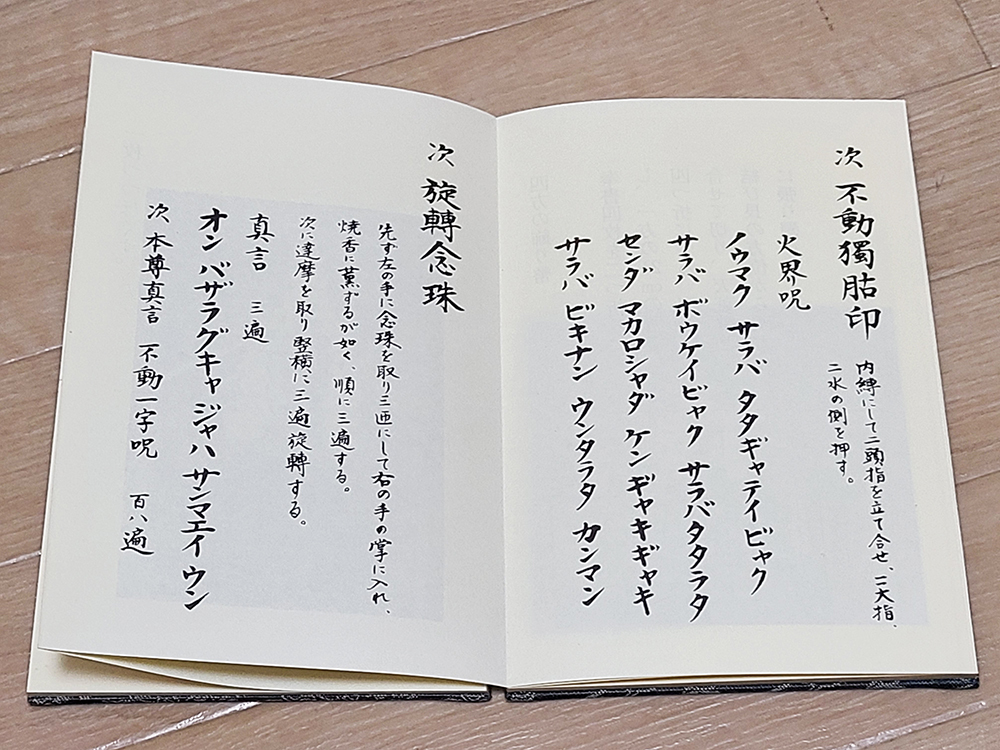 次 不動獨胋印
内縛にして二頭指を立て合せ、二大指、
二水の側を押す。
火界呪
ノウマク サラバ タタギャテイビャク
サラバ ボウケイビャク サラバタタラタ
センダ マカロシャダ ケンギャキギャキ
サラバ ビキナン ウンタラタ カンマン
次 旋轉念珠
先ず左の手に念珠を取り三匝にして右の手の掌に入れ、
焼香に薫ずるが如く、順に三遍する。
次に達摩を取り竪横に三遍旋轉する。
真言 三遍
オン バザラグキャ ジャハ サンマエイ ウン
次 本尊真言 不動一字呪 百八遍